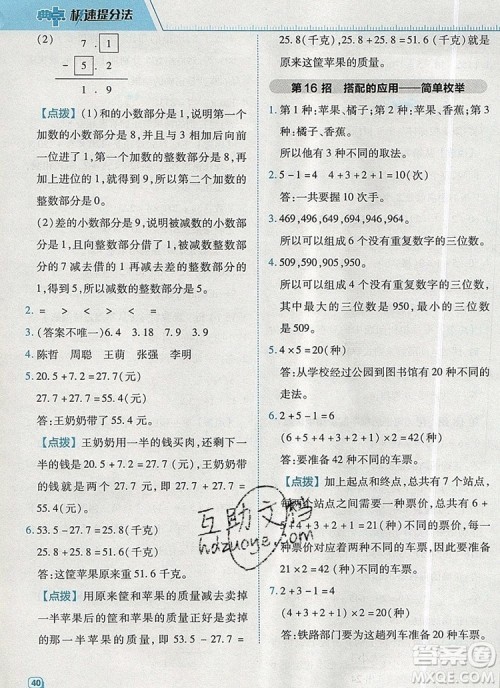 典点 极速提分法
(2) 7.1
- 5.2
1.9
【点拨】(1)和的小数部分是1,说明第一个
加数的小数部分是9,两个加数的小数部
分相加的结果是11,向整数部分进了1,加
上进上来的1,就得到9,所以第二个加数的
整数部分是0。
(2)差的小数部分是9,说明被减数的小数部
分是1,且向整数部分借了1,被减数的整数
部分的7减去借的1再减去减数的整数部分
得1,所以减数的整数部分是5。
2. = > < > <
3. (答案不唯一)6.4 3.18 7.9 4.9
4. 陈哲 周聪 王萌 张强 李明
5. 20.5+7.2=27.7(元)
27.7+27.7=55.4(元)
答:王奶奶带了55.4元。
【点拨】王奶奶用一半的钱买肉,还剩下一
半的钱是20.5+7.2=27.7(元),王奶奶
带的钱是27.7+27.7=55.4(元)。
6. 53.5-27.7=25.8(千克)
25.8+25.8=51.6(千克)
答:这筐苹果原来重51.6千克。
【点拨】用原来筐和苹果的质量减去卖掉
一半苹果后筐和苹果的质量,就是卖掉的
那一半苹果的质量,53.5-27.7=
40
25.8(千克),25.8+25.8=51.6(千克)就是
原来这筐苹果的质量。
第16招 搭配的应用——简单枚举
1. 第1种:苹果、橘子;第2种:苹果、香蕉;
第3种:橘子、香蕉。
所以他有3种不同的取法。
2. 5-1=4 4+3+2+1=10(次)
答:一共要握10次手。
3. 469,496,649,694,946,964。
所以可以组成6个没有重复数字的三位数。
4. 509,590,905,950。
所以可以组成4个没有重复数字的三位
数,其中最大的三位数是950,最小的三位
数是509。
5. 4×5=20(种)
答:从学校经过公园到图书馆有20种不同的
走法。
6. 2+5-1=6
(6+5+4+3+2+1)×2=42(种)
答:要准备42种不同的车票。
【点拨】加上起点和终点,总共有7个站点,
每两个站点之间有一种票价,总共有6+
5+4+3+2+1=21(种)不同的票价,每
种票价对应着两种不同的车票,所以有
21×2=42(种)不同的车票。
7. 2+3-1=4
(4+3+2+1)×2=20(种)
答:铁路部门要为这趟列车准备20种车票。
互助文档
hdzuoye.com
作业帮
MXQE.COM